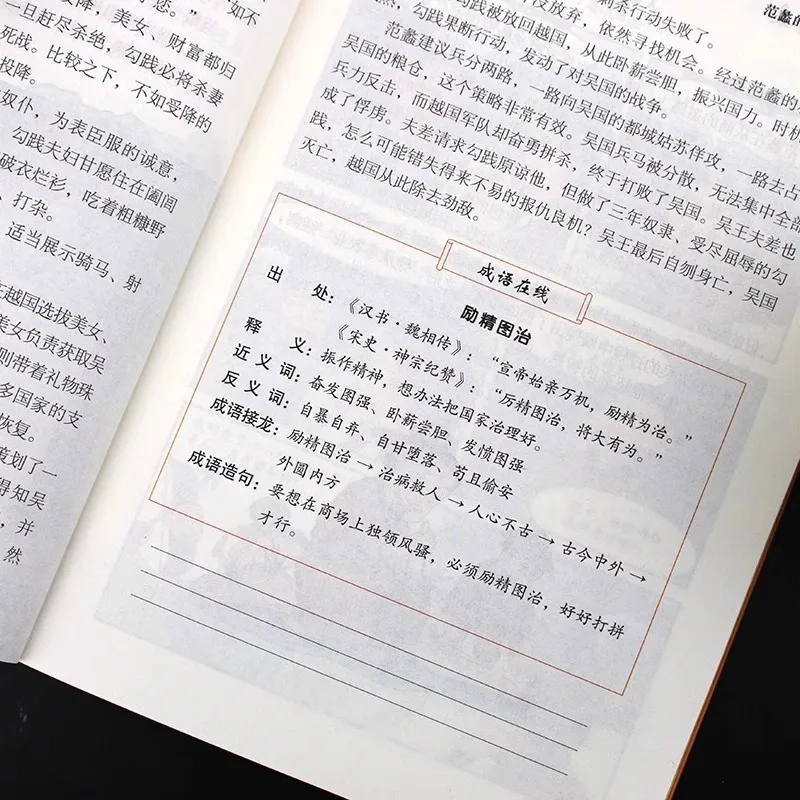 您。” 如不
降，美女、财富都归
一旦赶尽杀绝，勾践必将杀妻
死战。比较之下，不如受降的
投降。
奴仆，为表臣服的诚意，
勾践夫妇甘愿住在阖闾
破衣烂衫，吃着粗糠野
、打杂。
适当展示骑马、射
在越国选拔美女、
美女负责获取吴
则带着礼物珠
多国家的支
恢复。
策划了一
得知吴
，并
然
范蠡的
刺杀行动失败了。
没放弃，依然寻找机会。经过范蠡的
然，勾践被放回越国，从此卧薪尝胆，振兴国力。时机
，勾践果断行动，发动了对吴国的战争。
范蠡建议兵分两路，一路向吴国的都城姑苏佯攻，一路去占
吴国的粮仓，这个策略非常有效。吴国兵马被分散，无法集中全部
兵力反击，而越国军队却奋勇拼杀，终于打败了吴国。吴王夫差也
成了俘虏。夫差请求勾践原谅他，但做了三年奴隶、受尽屈辱的勾
践，怎么可能错失得来不易的报仇良机？吴王最后自刎身亡，吴国
灭亡，越国从此除去劲敌。
成语在线
励精图治
出处：《汉书·魏相传》：“宣帝始亲万机，励精为治。”
《宋史·神宗纪赞》：“厉精图治，将大有为。”
释义：振作精神，想办法把国家治理好。
近义词：奋发图强、卧薪尝胆、发愤图强
反义词：自暴自弃、自甘堕落、苟且偷安
成语接龙：励精图治→治病救人→人心不古→古今中外→
外圆内方
成语造句：要想在商场上独领风骚，必须励精图治，好好打拼
才行。